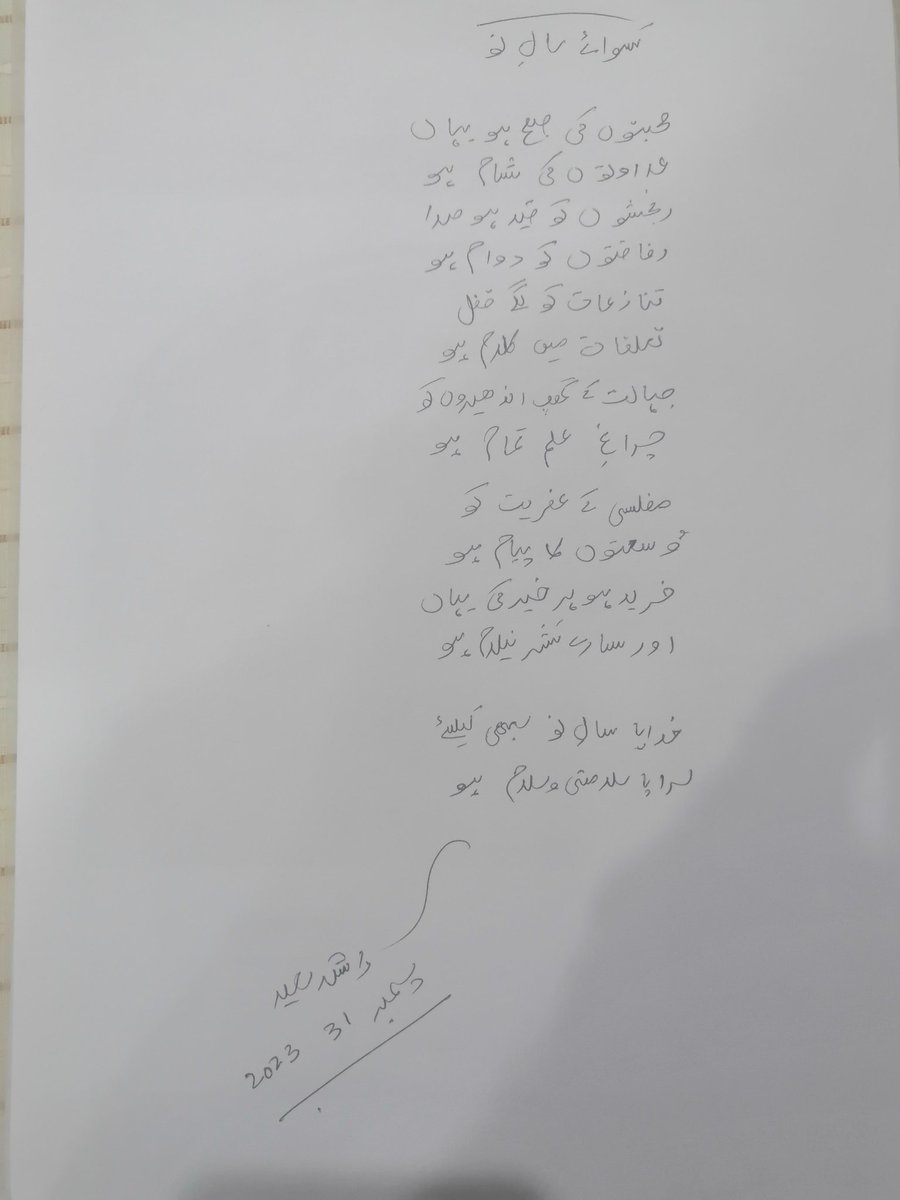 بسوائے سالِ نو
محبتوں کی صبح ہو یہاں
عداوتوں کی شام ہو
رنجشوں کو قید ہو صدا
رفاقتوں کو دوام ہو
تنازعات کو لگے قفل
تعلقات میں کلام ہو
جہالت کے گھپ اندھیروں کو
چراغِ علم تمام ہو
مفلسی کے عفریت کو
وُسعتوں کا پیام ہو
خرید ہو ہر خیر کی یہاں
اور سارے شر نیلام ہو
خدایا سالِ نو سبھی کیلئے
سراپا سلامتی و سلام ہو
راشد سعید
دسمبر 31 2023